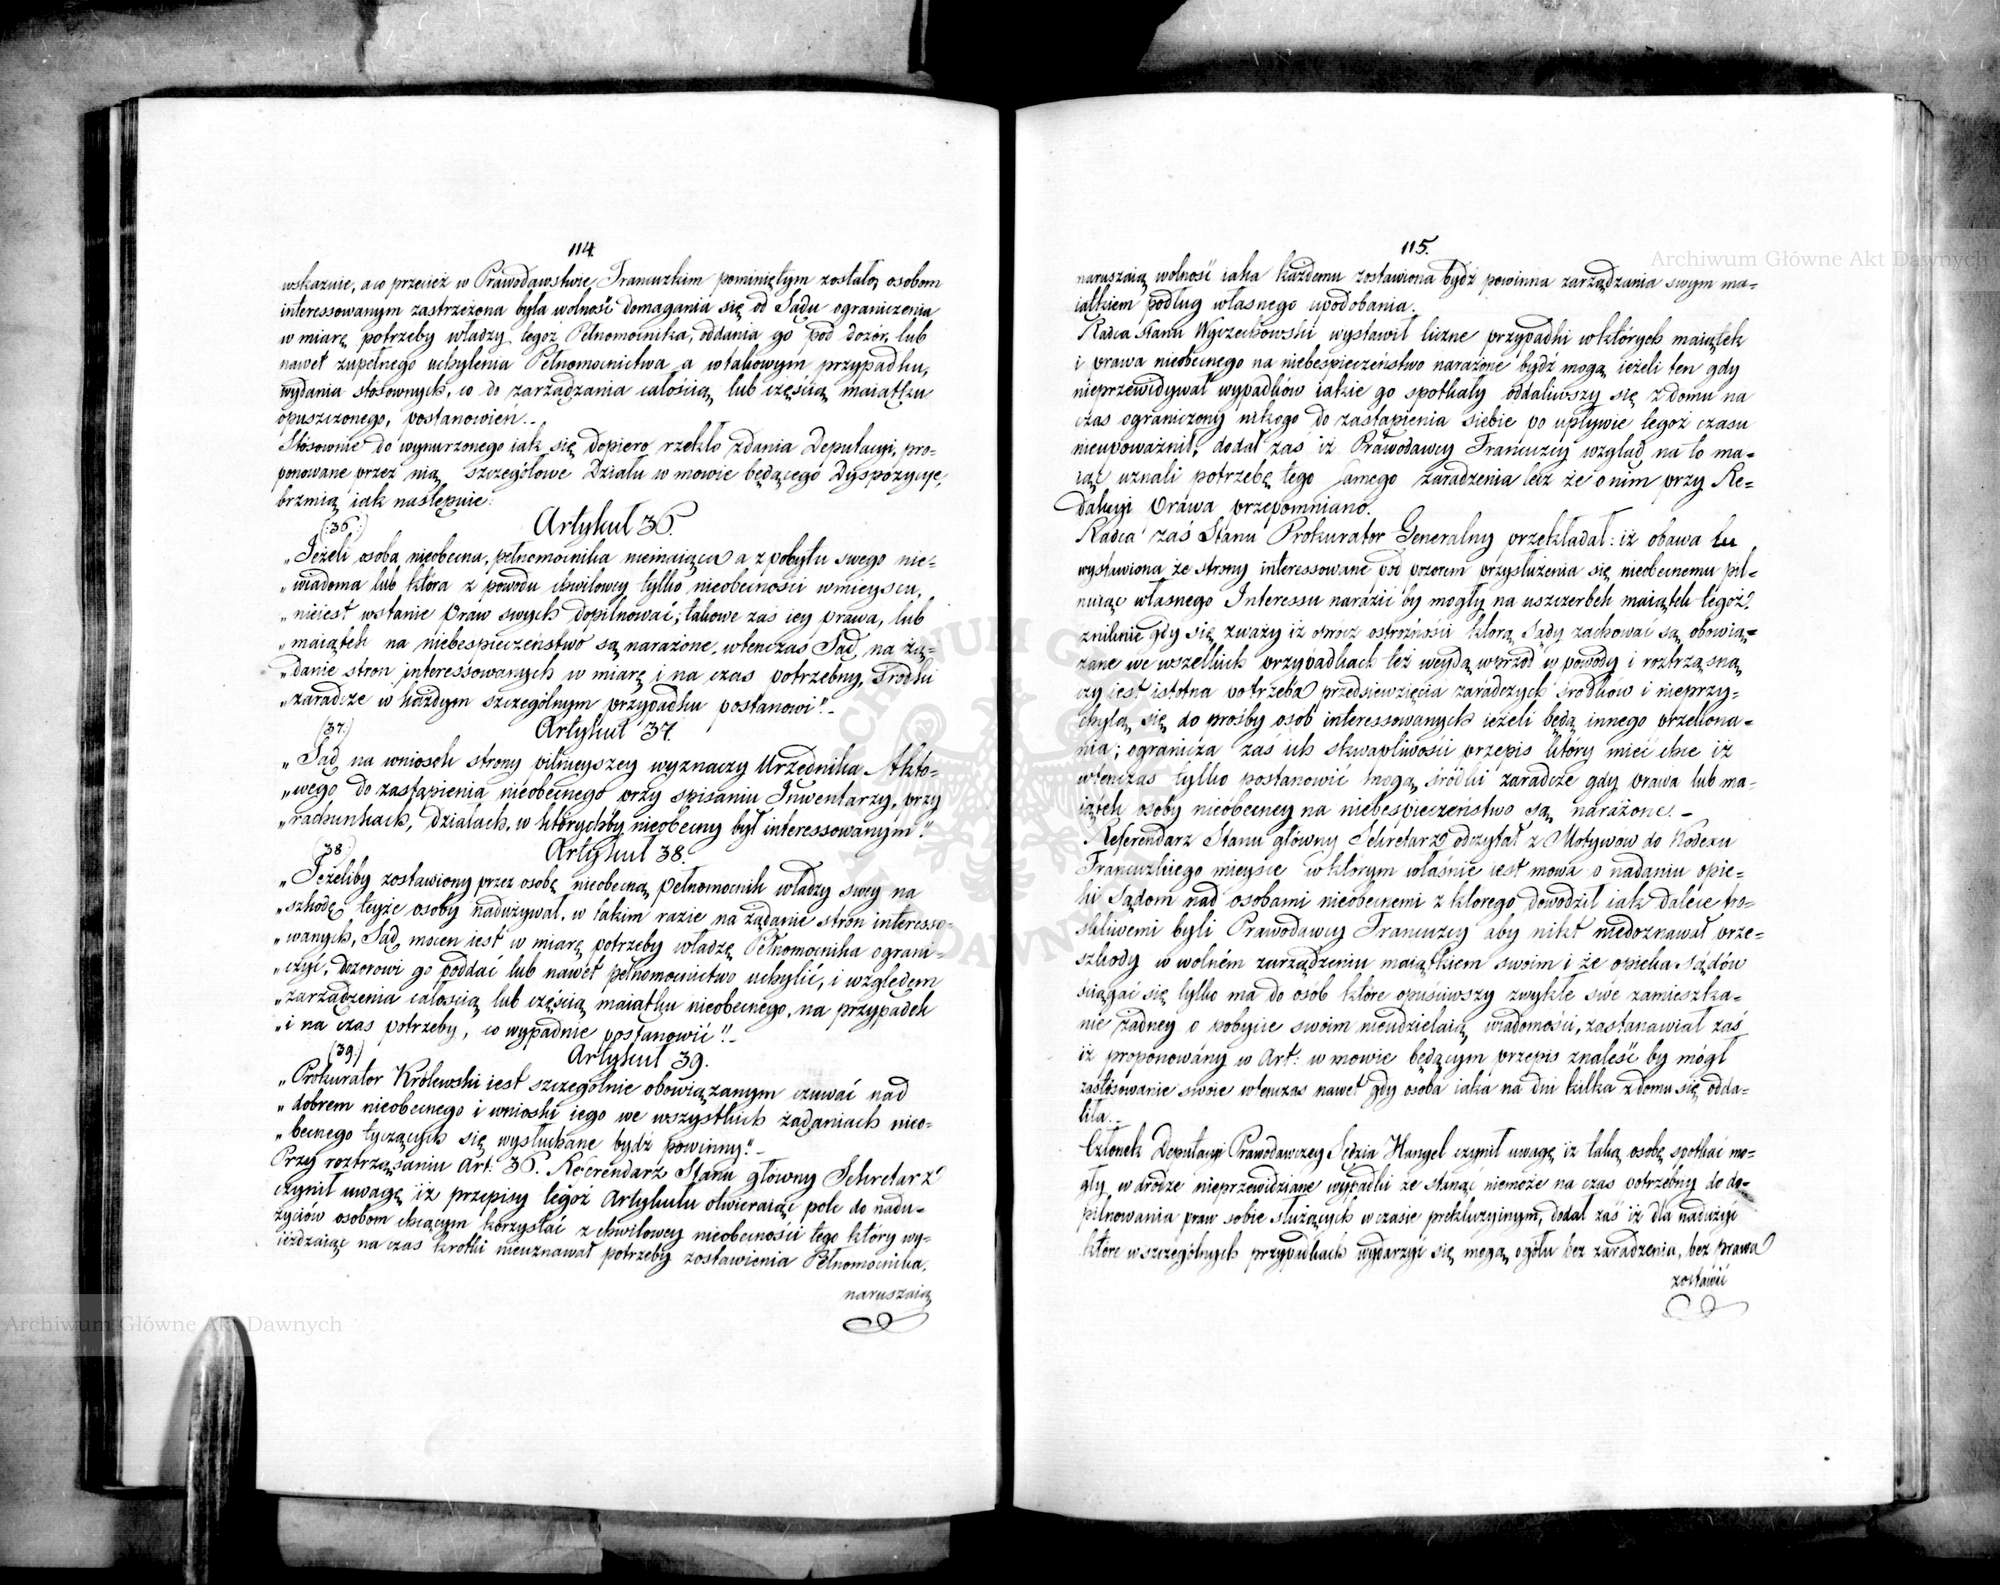 114.
wskazuie, a co przecież w Prawodawstwie Francuzkim pominiętym zostało, osobom
interessowanym zastrzeżona była wolność domagania się od Sądu ograniczenia
w miarę potrzeby władzy tegoż Pełnomocnika, oddania go pod dozór, lub
nawet zupełnego uchylenia Pełnomocnictwa a w takowym przypadku,
wydania stosownych, co do zarządzania całością lub częścią maiątku
opuszczonego, postanowień.-
Stosownie do wynurzonego iak się dopiero rzekło zdania Deputacyi, pro-
ponowane przez nią szczegółowe Działu w mowie będącego Dyspozycye,
brzmią iak następuie:
Artykuł 36.
(:36:)
„Jeżeli osoba nieobecna, pełnomocnika niemaiąca a z pobytu swego nie-
„wiadoma lub która z powodu chwilowey tylko nieobecności w mieyscu,
„nieiest w stanie Praw swych dopilnować; takowe zaś iey prawa, lub
„maiątek na niebespieczeństwo są narażone, wtenczas Sąd, na żą-
„danie stron interessowanych w miarę i na czas potrzebny, Środki
„zaradcze w każdym szczególnym przypadku postanowi".-
Artykuł 37.
(37.)
„Sąd na wniosek strony pilnieyszey wyznaczy Urzędnika Akto-
„wego do zastąpienia nieobecnego przy spisaniu Inwentarzy, przy
„rachunkach, działach, w którychby nieobecny był interessowanym".
Artykuł 38.
(38.)
„Jeżeliby zostawiony przez osobę nieobecną Pełnomocnik władzy swey na
„szkodę teyże osoby nadużywał, w takim razie na żądanie stron interesso-
„wanych, Sąd mocen iest w miarę potrzeby władzę Pełnomocnika ograni-
„czyć, dozorowi go poddać lub nawet pełnomocnictwo uchylić, i względem
„zarządzenia całością lub częścią maiątku nieobecnego, na przypadek
„i na czas potrzeby, co wypadnie postanowić".-
Artykuł 39.
(39.)
„Prokurator Królewski iest szczególnie obowiązanym czuwać nad
„dobrem nieobecnego i wnioski iego we wszystkich żądaniach nieo-
„becnego tyczących się wysłuchane bydź powinny".-
Przy roztrząsaniu Art: 36. Referendarz Stanu główny Sekretarz
czynił uwagę iż przepisy tegoż Artykułu otwieraiąc pole do nadu-
życiów osobom chcącym korzystać z chwilowey nieobecności tego który wy-
ieżdzaiąc na czas krótki nieuznawał potrzeby zostawienia Pełnomocnika,
naruszaią
115.
naruszaią wolność iaka każdemu zostawiona bydź powinna zarządzania swym ma-
iątkiem podług własnego upodobania.
Radca Stanu Wyczechowski wystawił liczne przypadki w których maiątek
i prawa nieobecnego na niebespieczeństwo narażone bydź mogą ieżeli ten gdy
nieprzewidywał wypadków iakie go spotkały oddaliwszy się z domu na
czas ograniczony nikogo do zastąpienia siebie po upływie tegoż czasu
nieupoważnił, dodał zaś iż Prawodawcy Francuzcy wzgląd na to ma-
iąc uznali potrzebę tego samego zaradzenia lecz że o nim przy Re-
dakcyi Prawa przepomniano.
Radca zaś Stanu Prokurator Generalny przekładał: iż obawa tu
wystawiona że strony interessowane pod pozorem przysłużenia się nieobecnemu pil-
nuiąc własnego Interessu narazić by mogły na uszczerbek maiątek tegoż,
zniknie gdy się zważy iż oprócz ostrożności którą Sądy zachować są obowią-
zane we wszelkich przypadkach też weydą wprzód w powody i roztrząsną
czy iest istotna potrzeba przedsiewzięcia zaradczych środków i nieprzy-
chylą się do prośby osób interessowanych ieżeli będą innego przekona-
nia; ogranicza zaś ich skwapliwości przepis który mieć chce iż
wtenczas tylko postanowić mogą śródki zaradcze gdy prawa lub ma-
iątek osoby nieobecney na niebespieczeństwo są narażone.-
Referendarz Stanu główny Sekretarz odczytał z Motywów do Kodexu
Francuzkiego mieysce w którym właśnie iest mowa o nadaniu opie-
ki Sądom nad osobami nieobecnemi z którego dowodził iak dalece tro-
skliwemi byli Prawodawcy Francuzcy aby nikt niedoznawał prze-
szkody w wolném zarządzeniu maiątkiem swoim i że opieka Sądów
ściągać się tylko ma do osób które opuściwszy zwykłe swe zamieszka-
nie żadney o pobycie swoim nieudzielaią wiadomości, zastanawiał zaś
iż proponowany w Art: w mowie będącym przepis znaleść by mógł
zastosowanie swoie wtenczas nawet gdy osoba iaka na dni kilka z domu się odda-
liła.-
Członek Deputacyi Prawodawczey Sędzia Hangel czynił uwagę iż taką osobę spotkać mo-
gły w drodze nieprzewidziane wypadki że stanąć niemoże na czas potrzebny do do-
pilnowania praw sobie służących w czasie prekluzyinym, dodał zaś iż dla nadużyć
które w szczególnych przypadkach wydarzyć się mogą ogółu bez zaradzenia, bez prawa
zostawić
Archiwum Główne Akt Dawnych
Archiwum Główne Akt Dawnych
ARCHIWUM GŁÓWNE AKT DAWNYCH